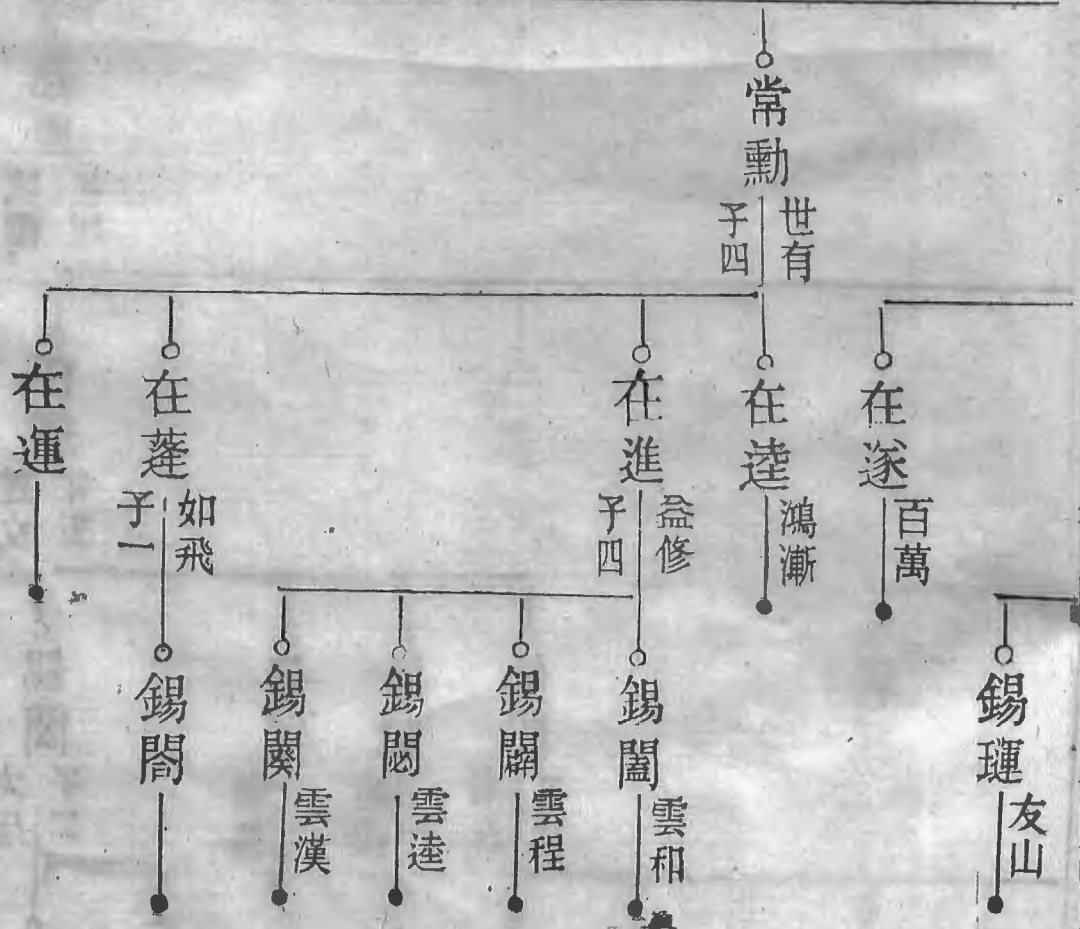 常勳
世有
子四
在遂
百萬
在逵
鴻漸
在進
益修
子四
在蓬
如飛
子一
在運
錫璉
友山
錫闔
雲和
錫闢
雲程
錫閟
雲逵
錫闋
雲漢
錫閤